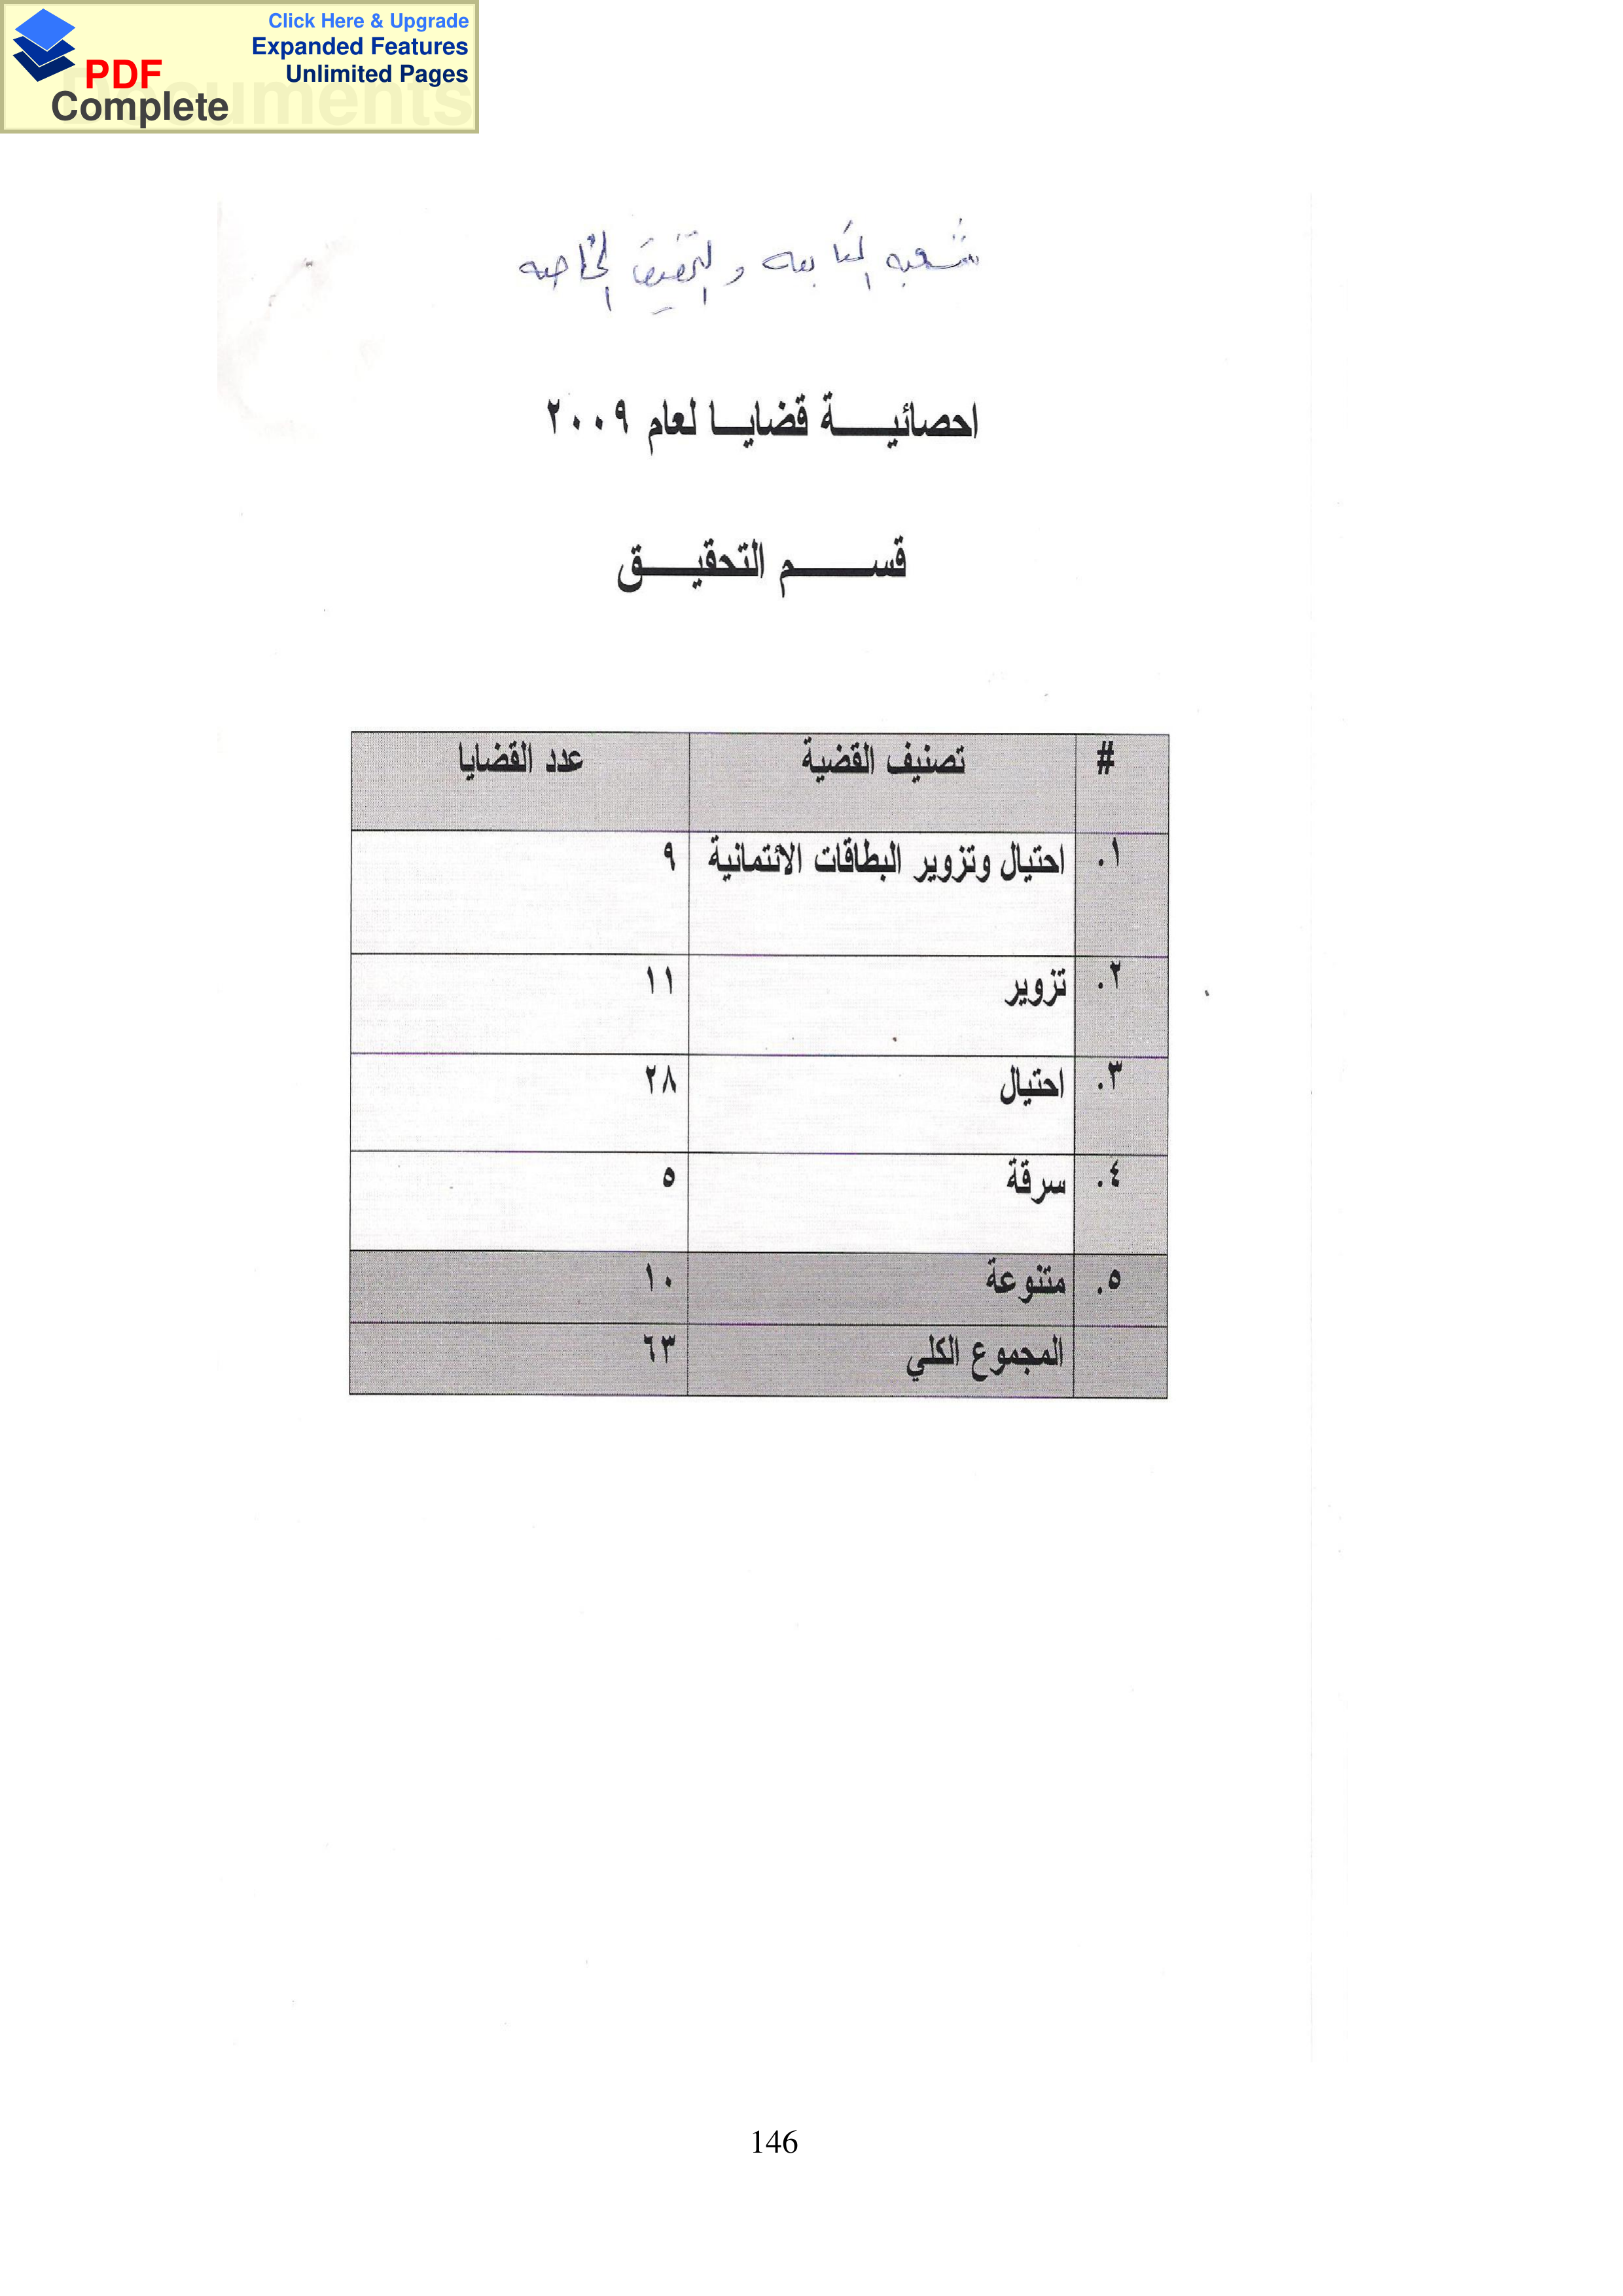 Click Here & Upgrade
Expanded Features
Unlimited Pages
PDF
Complete
Documents
شعبه المتابعه والتحقيق الخاصه
احصائيــــة قضايــا لعام ٢٠٠٩
قســــم التحقيــــق
# تصنيف القضية عدد القضايا
١. احتيال وتزوير البطاقات الائتمانية ٩
٢. تزوير ١١
٣. احتيال ٢٨
٤. سرقة ٥
٥. متنوعة ١٠
المجموع الكلي ٦٣
146